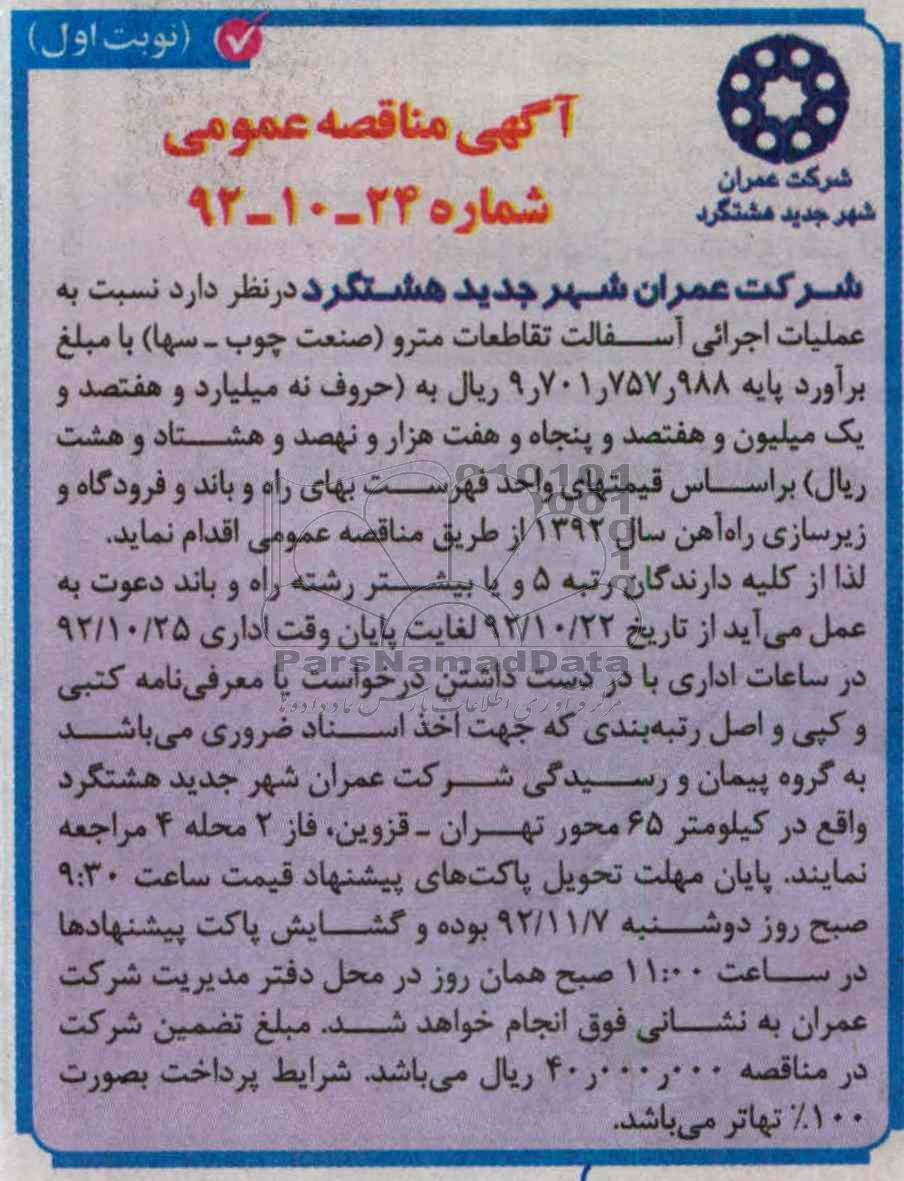 (نوبت اول)
شرکت عمران
شهر جدید هشتگرد
آگهی مناقصه عمومی
شماره ۲۴-۱۰-۹۲
شرکت عمران شهر جدید هشتگرد درنظر دارد نسبت به
عملیات اجرائی آسفالت تقاطعات مترو (صنعت چوب ـ سها) با مبلغ
برآورد پایه ۹٫۷۰۱٫۷۵۷٫۹۸۸ ریال به (حروف نه میلیارد و هفتصد و
یک میلیون و هفتصد و پنجاه و هفت هزار و نهصد و هشتاد و هشت
ریال) براساس قیمتهای واحد فهرست بهای راه و باند و فرودگاه و
زیرسازی راه‌آهن سال ۱۳۹۲ از طریق مناقصه عمومی اقدام نماید.
لذا از کلیه دارندگان رتبه ۵ و یا بیشتر رشته راه و باند دعوت به
عمل می‌آید از تاریخ ۹۲/۱۰/۲۲ لغایت پایان وقت اداری ۹۲/۱۰/۲۵
در ساعات اداری با در دست داشتن درخواست یا معرفی‌نامه کتبی
و کپی و اصل رتبه‌بندی که جهت اخذ اسناد ضروری می‌باشد
به گروه پیمان و رسیدگی شرکت عمران شهر جدید هشتگرد
واقع در کیلومتر ۶۵ محور تهران ـ قزوین، فاز ۲ محله ۴ مراجعه
نمایند. پایان مهلت تحویل پاکت‌های پیشنهاد قیمت ساعت ۹:۳۰
صبح روز دوشنبه ۹۲/۱۱/۷ بوده و گشایش پاکت پیشنهادها
در ساعت ۱۱:۰۰ صبح همان روز در محل دفتر مدیریت شرکت
عمران به نشانی فوق انجام خواهد شد. مبلغ تضمین شرکت
در مناقصه ۴۰٫۰۰۰٫۰۰۰ ریال می‌باشد. شرایط پرداخت بصورت
۱۰۰٪ تهاتر می‌باشد.
ParsNamadData
مرکز فرآوری اطلاعات پارس نماد داده‌ها